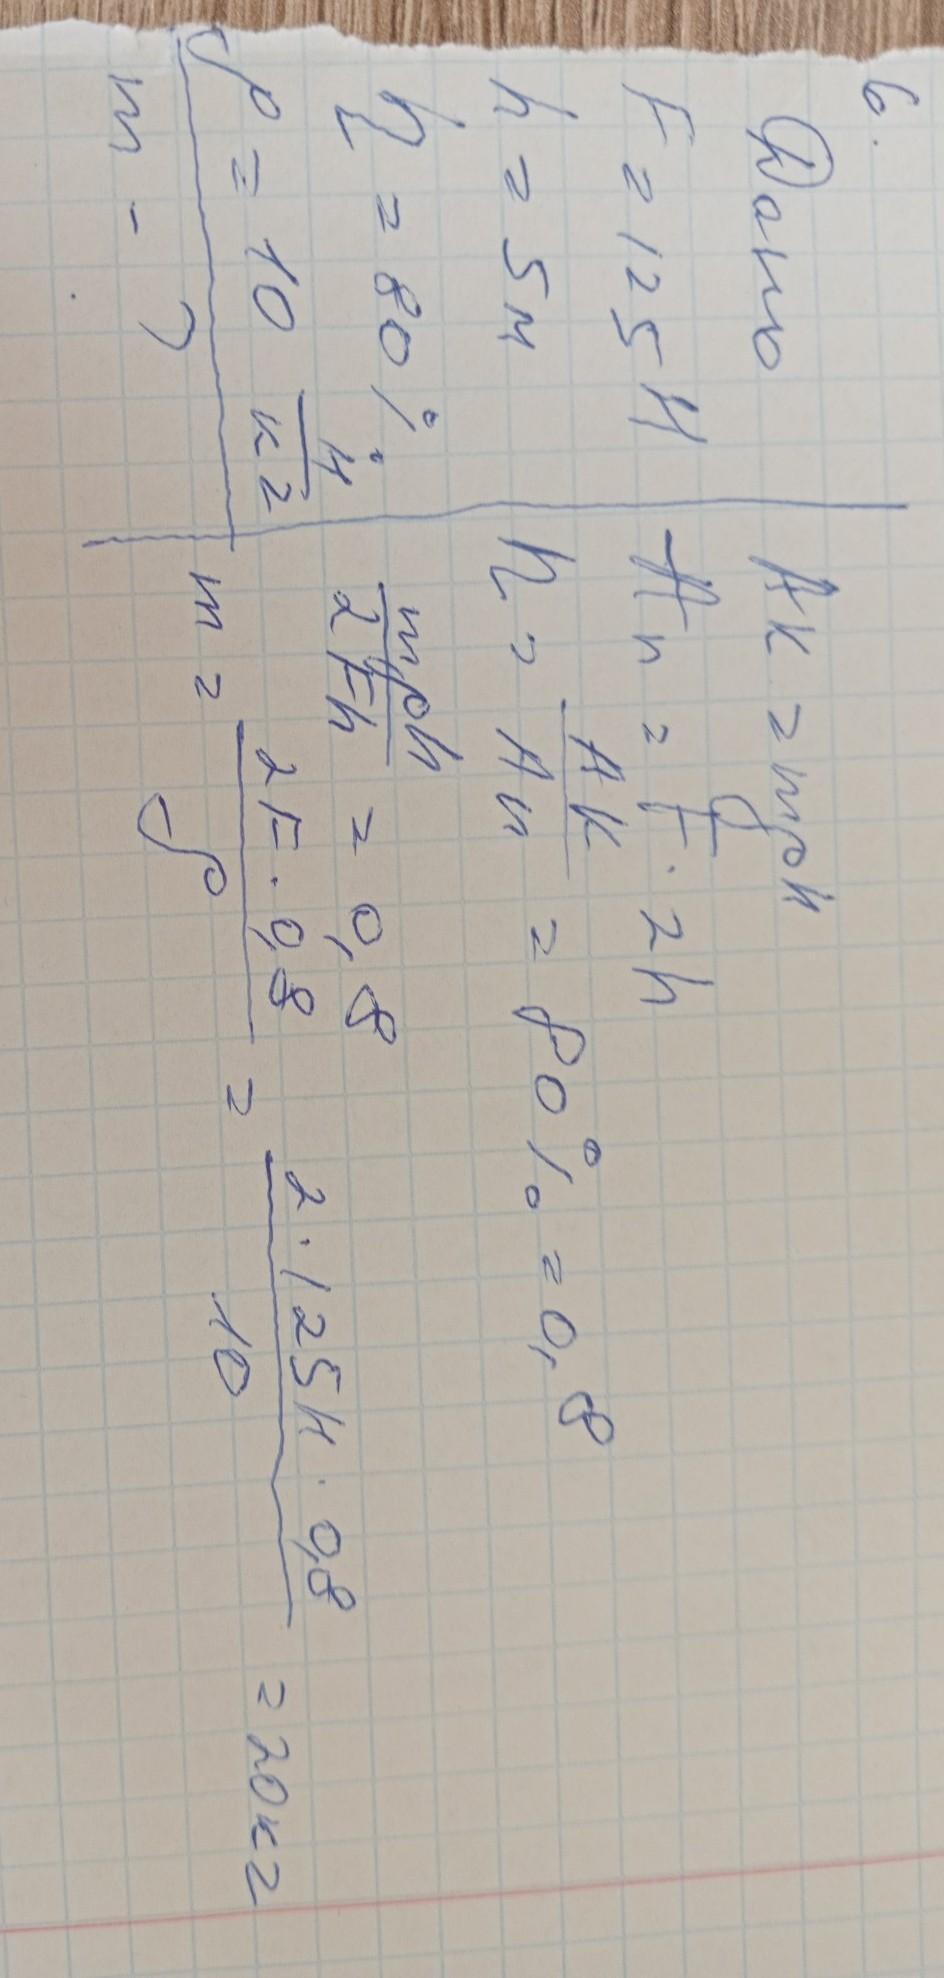 6.
Дано
F = 125 Н
h = 5 м
η = 80 %
g = 10 Н/кг
m - ?
Ак = mgh
Ап = F · 2h
η = Ак/Ап = 80 % = 0,8
mgh/2Fh = 0,8
m = 2F · 0,8/g = 2 · 125Н · 0,8/10 = 20 кг